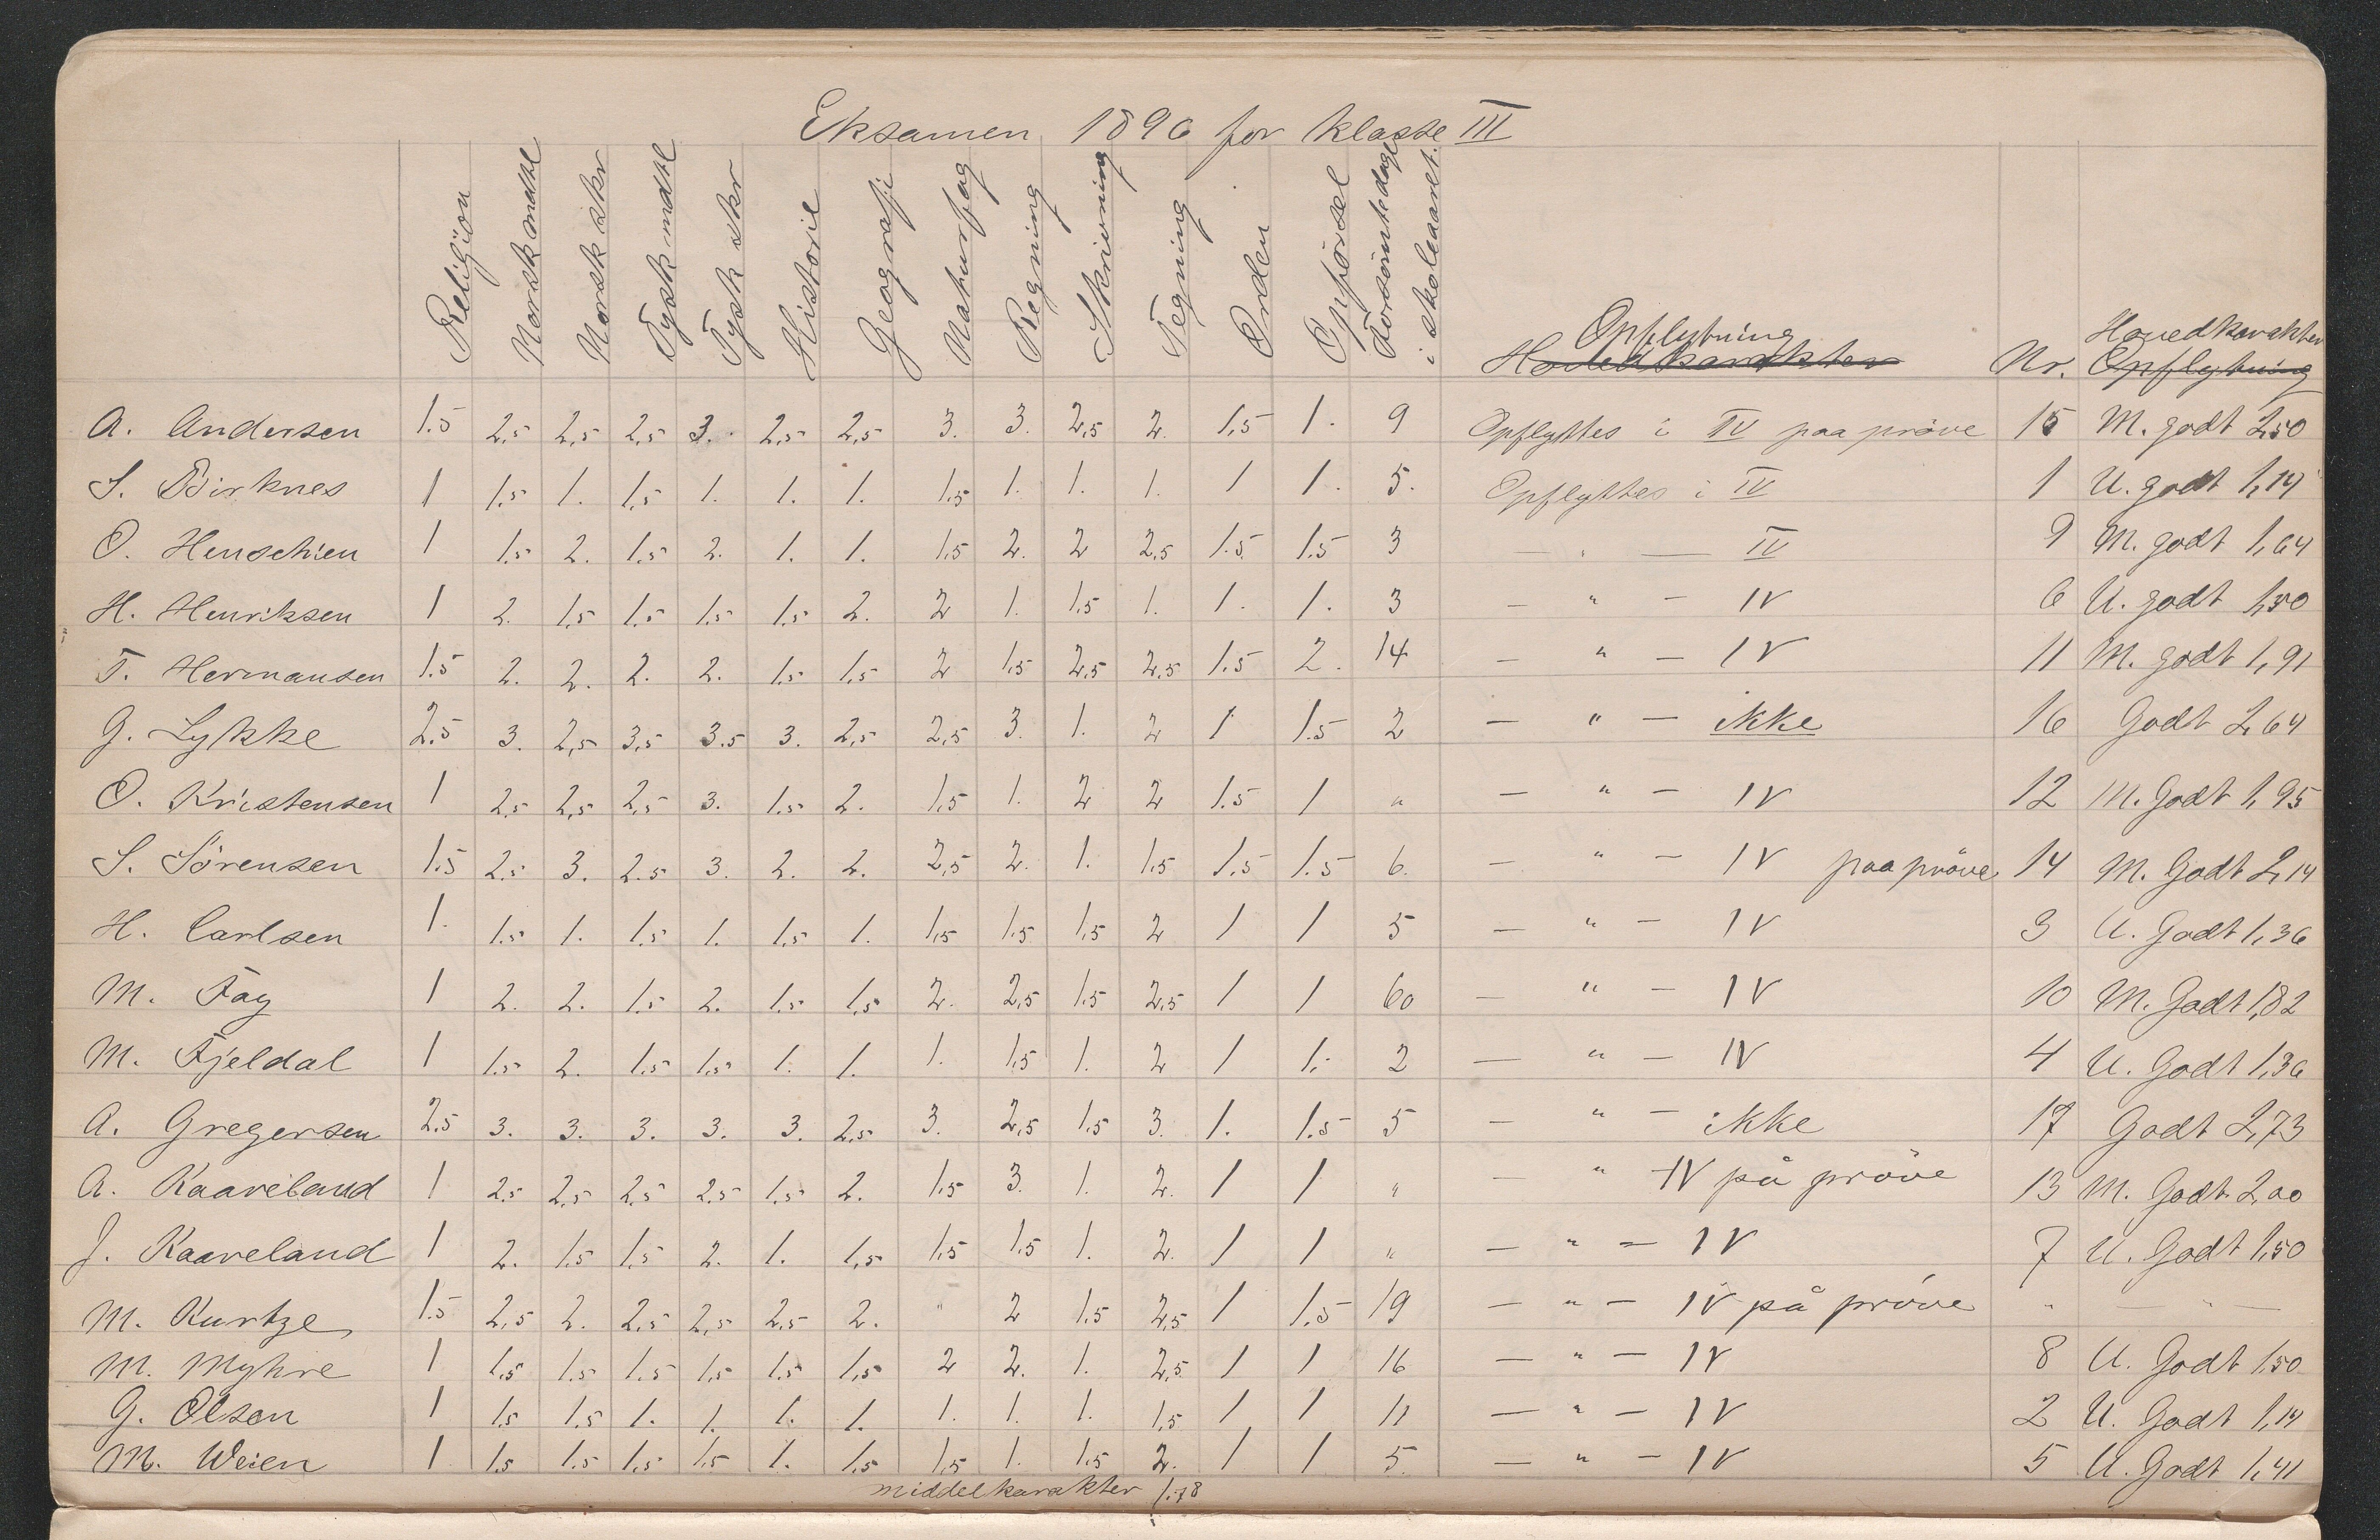 Eksamen 1896 for klasse III
Religion Norsk mdtl Norsk skr Tysk mdtl Tysk skr Historie Geografi Naturfag Regning Skrivning Tegning Orden Opførsel Forsømte dage i skoleaaret. Opflytning Hovedkarakter Nr. Hovedkarakter Opflytning
A. Andersen 1.5 2,5 2,5 2,5 3. 2,5 2,5 3. 3. 2,5 2. 1,5 1. 9 Opflyttes i IV paa prøve 15 M. godt 2,50
S. Birknes 1 1.5 1. 1,5 1. 1. 1. 1,5 1. 1. 1. 1 1. 5. Opflyttes i IV 1 U. godt 1,14
O. Henschien 1 1.5 2. 1.5 2. 1. 1. 1.5 2. 2 2,5 1.5 1.5 3 — " — IV 9 M. godt 1,64
H. Henriksen 1 2. 1,5 1.5 1.5 1.5 2. 2 1. 1.5 1. 1. 1. 3 — " — IV 6 U. godt 1,50
T. Hermansen 1.5 2. 2. 2. 2. 1.5 1,5 2 1,5 2,5 2,5 1.5 2. 14 — " — IV 11 M. godt 1,91
G. Lykke 2.5 3. 2,5 3,5 3.5 3. 2,5 2,5 3. 1. 2 1 1.5 2 — " — ikke 16 Godt 2,64
O. Kristensen 1 2,5 2,5 2,5 3. 1.5 2. 1,5 1. 2 2 1.5 1 " — " — IV 12 M. Godt 1,95
S. Sørensen 1.5 2.5 3. 2.5 3. 2. 2. 2,5 2. 1. 1,5 1,5 1.5 6. — " — IV paa prøve 14 M. Godt 2,14
H. Carlsen 1. 1.5 1. 1.5 1. 1,5 1. 1,5 1.5 1,5 2 1 1 5 — " — IV 3 U. Godt 1,36
M. Fay 1 2. 2. 1.5 2. 1.5 1,5 2. 2,5 1.5 2,5 1 1 60 — " — IV 10 M. Godt 1,82
M. Fjeldal 1 1.5 2. 1.5 1.5 1. 1. 1. 1,5 1. 2 1 1. 2 — " — IV 4 U. Godt 1,36
A. Gregersen 2.5 3. 3. 3. 3. 3. 2.5 3. 2,5 1.5 3. 1. 1.5 5 — " — ikke 17 Godt 2,73
A. Kaaveland 1 2,5 2,5 2,5 2,5 1.5 2. 1.5 3. 1. 2. 1 1 " — " IV på prøve 13 M. Godt 2,00
J. Kaaveland 1 2. 1.5 1,5 2. 1. 1,5 1,5 1.5 1. 2. 1 1 " — " — IV 7 U. Godt 1,50
M. Kurtze 1.5 2,5 2. 2,5 2,5 2,5 2. " 2 1.5 2,5 1 1.5 19 — " — IV på prøve " — " —
M. Myhre 1 1,5 1.5 1.5 1,5 1.5 1,5 2 2. 1. 2,5 1 1 16 — " — IV 8 U. Godt 1.50
G. Olsen 1 1.5 1.5 1. 1. 1. 1. 1. 1. 1. 1,5 1 1 11 — " — IV 2 U. Godt 1,14
M. Weien 1 1.5 1.5 1,5 1.5 1. 1,5 1,5 1. 1.5 2. 1 1 5. — " — IV 5 U. Godt 1,41
middelkarakter 1.78